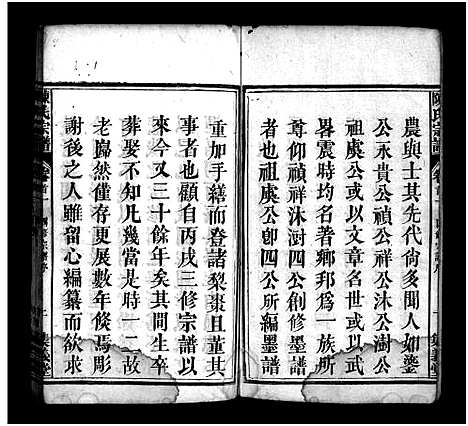 農與士其先代尙多聞人如鎏
公永貴公禎公祥公沐公澍公
祖虞公以文章名世或以武
畧震時均名著鄉邦爲一族所
尊仰禎祥沐澍四公創修墨譜
者也祖虞公卽四公所編墨譜
重加手繕而登諸梨棗且董其
事者也顯自丙戌三修宗譜以
來今又三十餘年矣其間生卒
葬娶不知凡幾當是時一二故
老巋然僅存更展數年倐焉彫
謝後之人雖留心編纂而欲求
陳氏宗譜
卷首一
集義堂